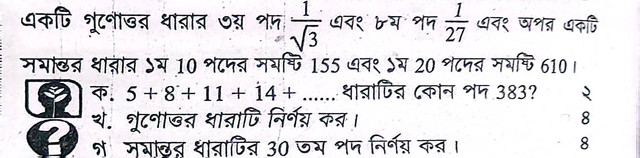 একটি গুণোত্তর ধারার ৩য় পদ 1/√3 এবং ৮ম পদ 1/27 এবং অপর একটি
সমান্তর ধারার ১ম 10 পদের সমষ্টি 155 এবং ১ম 20 পদের সমষ্টি 610।
ক. 5 + 8 + 11 + 14 + ...... ধারাটির কোন পদ 383? ২
খ. গুণোত্তর ধারাটি নির্ণয় কর। 8
গ সমান্তর ধারাটির 30 তম পদ নির্ণয় কর। 8